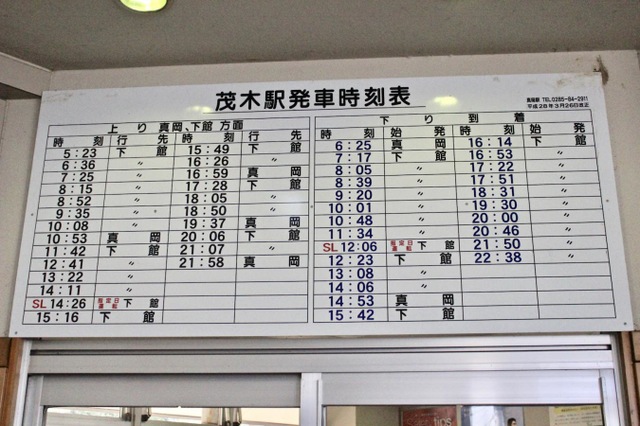 茂木駅発車時刻表
真岡駅 TEL.0285-84-2911
平成28年3月26日改正
上り 真岡、下館 方面
時刻 行先
5:23 下館
6:36 〃
7:25 〃
8:15 〃
8:52 〃
9:35 〃
10:08 〃
10:53 真岡
11:42 下館
12:41 〃
13:22 〃
14:11 〃
SL 14:26 指定日運転 下館
15:16 下館
時刻 行先
15:49 下館
16:26 〃
16:59 真岡
17:28 下館
18:05 〃
18:50 〃
19:37 真岡
20:06 下館
21:07 〃
21:58 真岡
下り到着
時刻 始発
6:25 真岡
7:17 下館
8:05 〃
8:39 〃
9:20 〃
10:01 〃
10:48 〃
11:34 〃
SL 12:06 指定日運転 下館
12:23 下館
13:08 〃
14:06 〃
14:53 真岡
15:42 下館
時刻 始発
16:14 下館
16:53 〃
17:22 〃
17:51 〃
18:31 〃
19:30 〃
20:00 〃
20:46 〃
21:50 〃
22:38 〃
tips